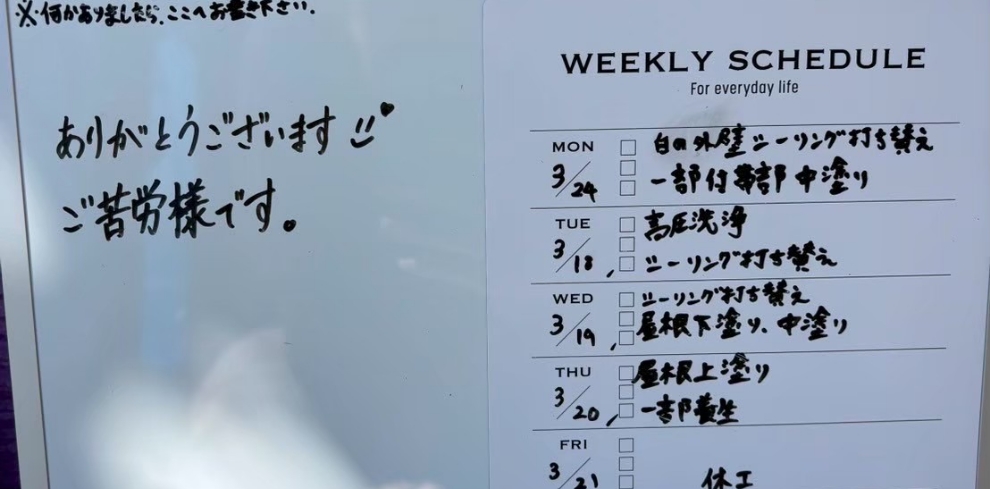 ※何かありましたら、ここへお書き下さい.
ありがとうございます
ご苦労様です。
WEEKLY SCHEDULE
For everyday life
MON
3/24
白の外壁シーリング打ち替え
一部付帯部中塗り
TUE
3/18,
高圧洗浄
シーリング打ち替え
WED
3/19,
シーリング打ち替え
屋根下塗り、中塗り
THU
3/20,
屋根上塗り
一部養生
FRI
3/21
休工